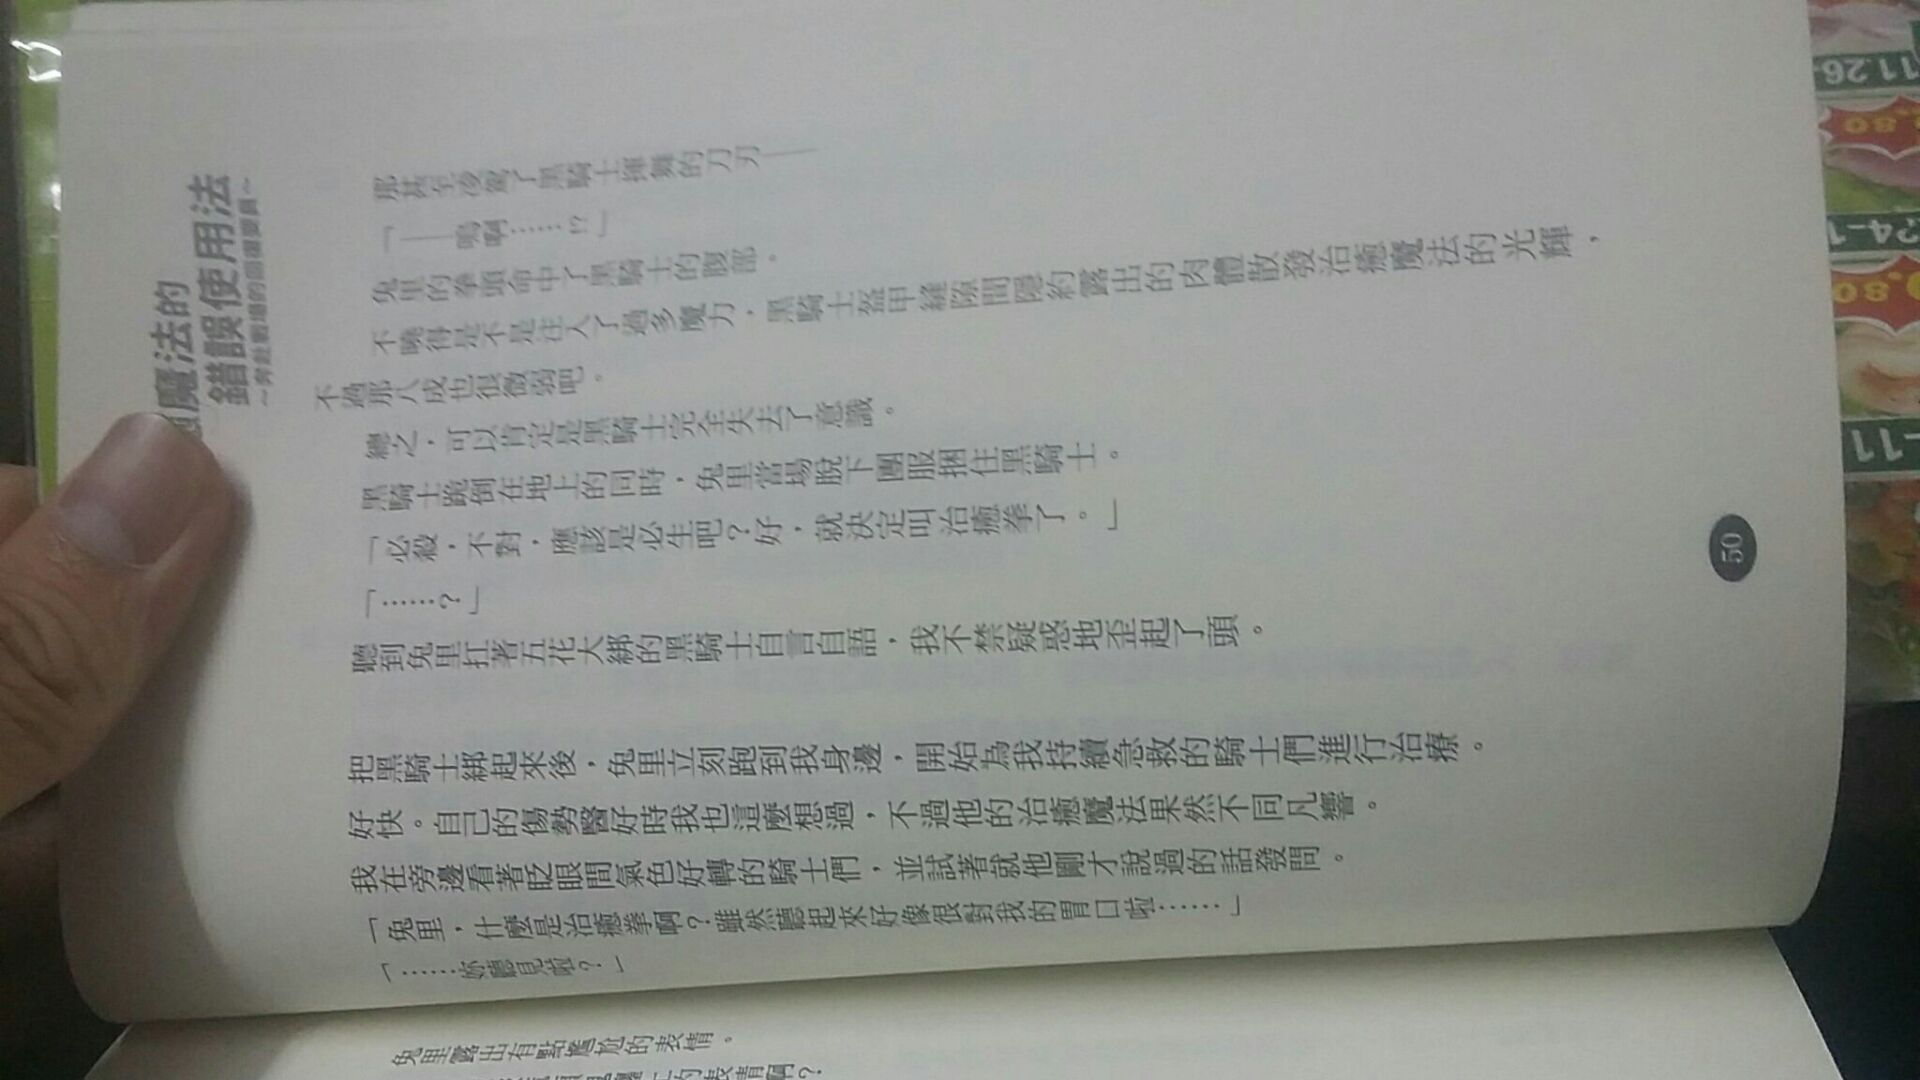 魔法的
錯誤使用法
～奔赴戰場的回復要員～
那甚至凌駕了黑騎士揮舞的刀刃——
「——嗚啊……!?」
兔里的拳頭命中了黑騎士的腹部。
不曉得是不是注入了過多魔力，黑騎士盔甲縫隙間隱約露出的肉體散發治癒魔法的光輝，
不過那八成也很微弱吧。
總之，可以肯定是黑騎士完全失去了意識。
黑騎士跪倒在地上的同時，兔里當場脫下團服捆住黑騎士。
「必殺，不對，應該是必生吧？好，就決定叫治癒拳了。」
「……？」
聽到兔里扛著五花大綁的黑騎士自言自語，我不禁疑惑地歪起了頭。
把黑騎士綁起來後，兔里立刻跑到我身邊，開始為我持續急救的騎士們進行治療。
好快。自己的傷勢醫好時我也這麼想過，不過他的治癒魔法果然不同凡響。
我在旁邊看著眨眼間氣色好轉的騎士們，並試著就他剛才說過的話發問。
「兔里，什麼是治癒拳啊？雖然聽起來好像很對我的胃口啦……」
「……你聽見啦？」
50
兔里露出有點尷尬的表情。
11.26
.80
24-1
.80
.11